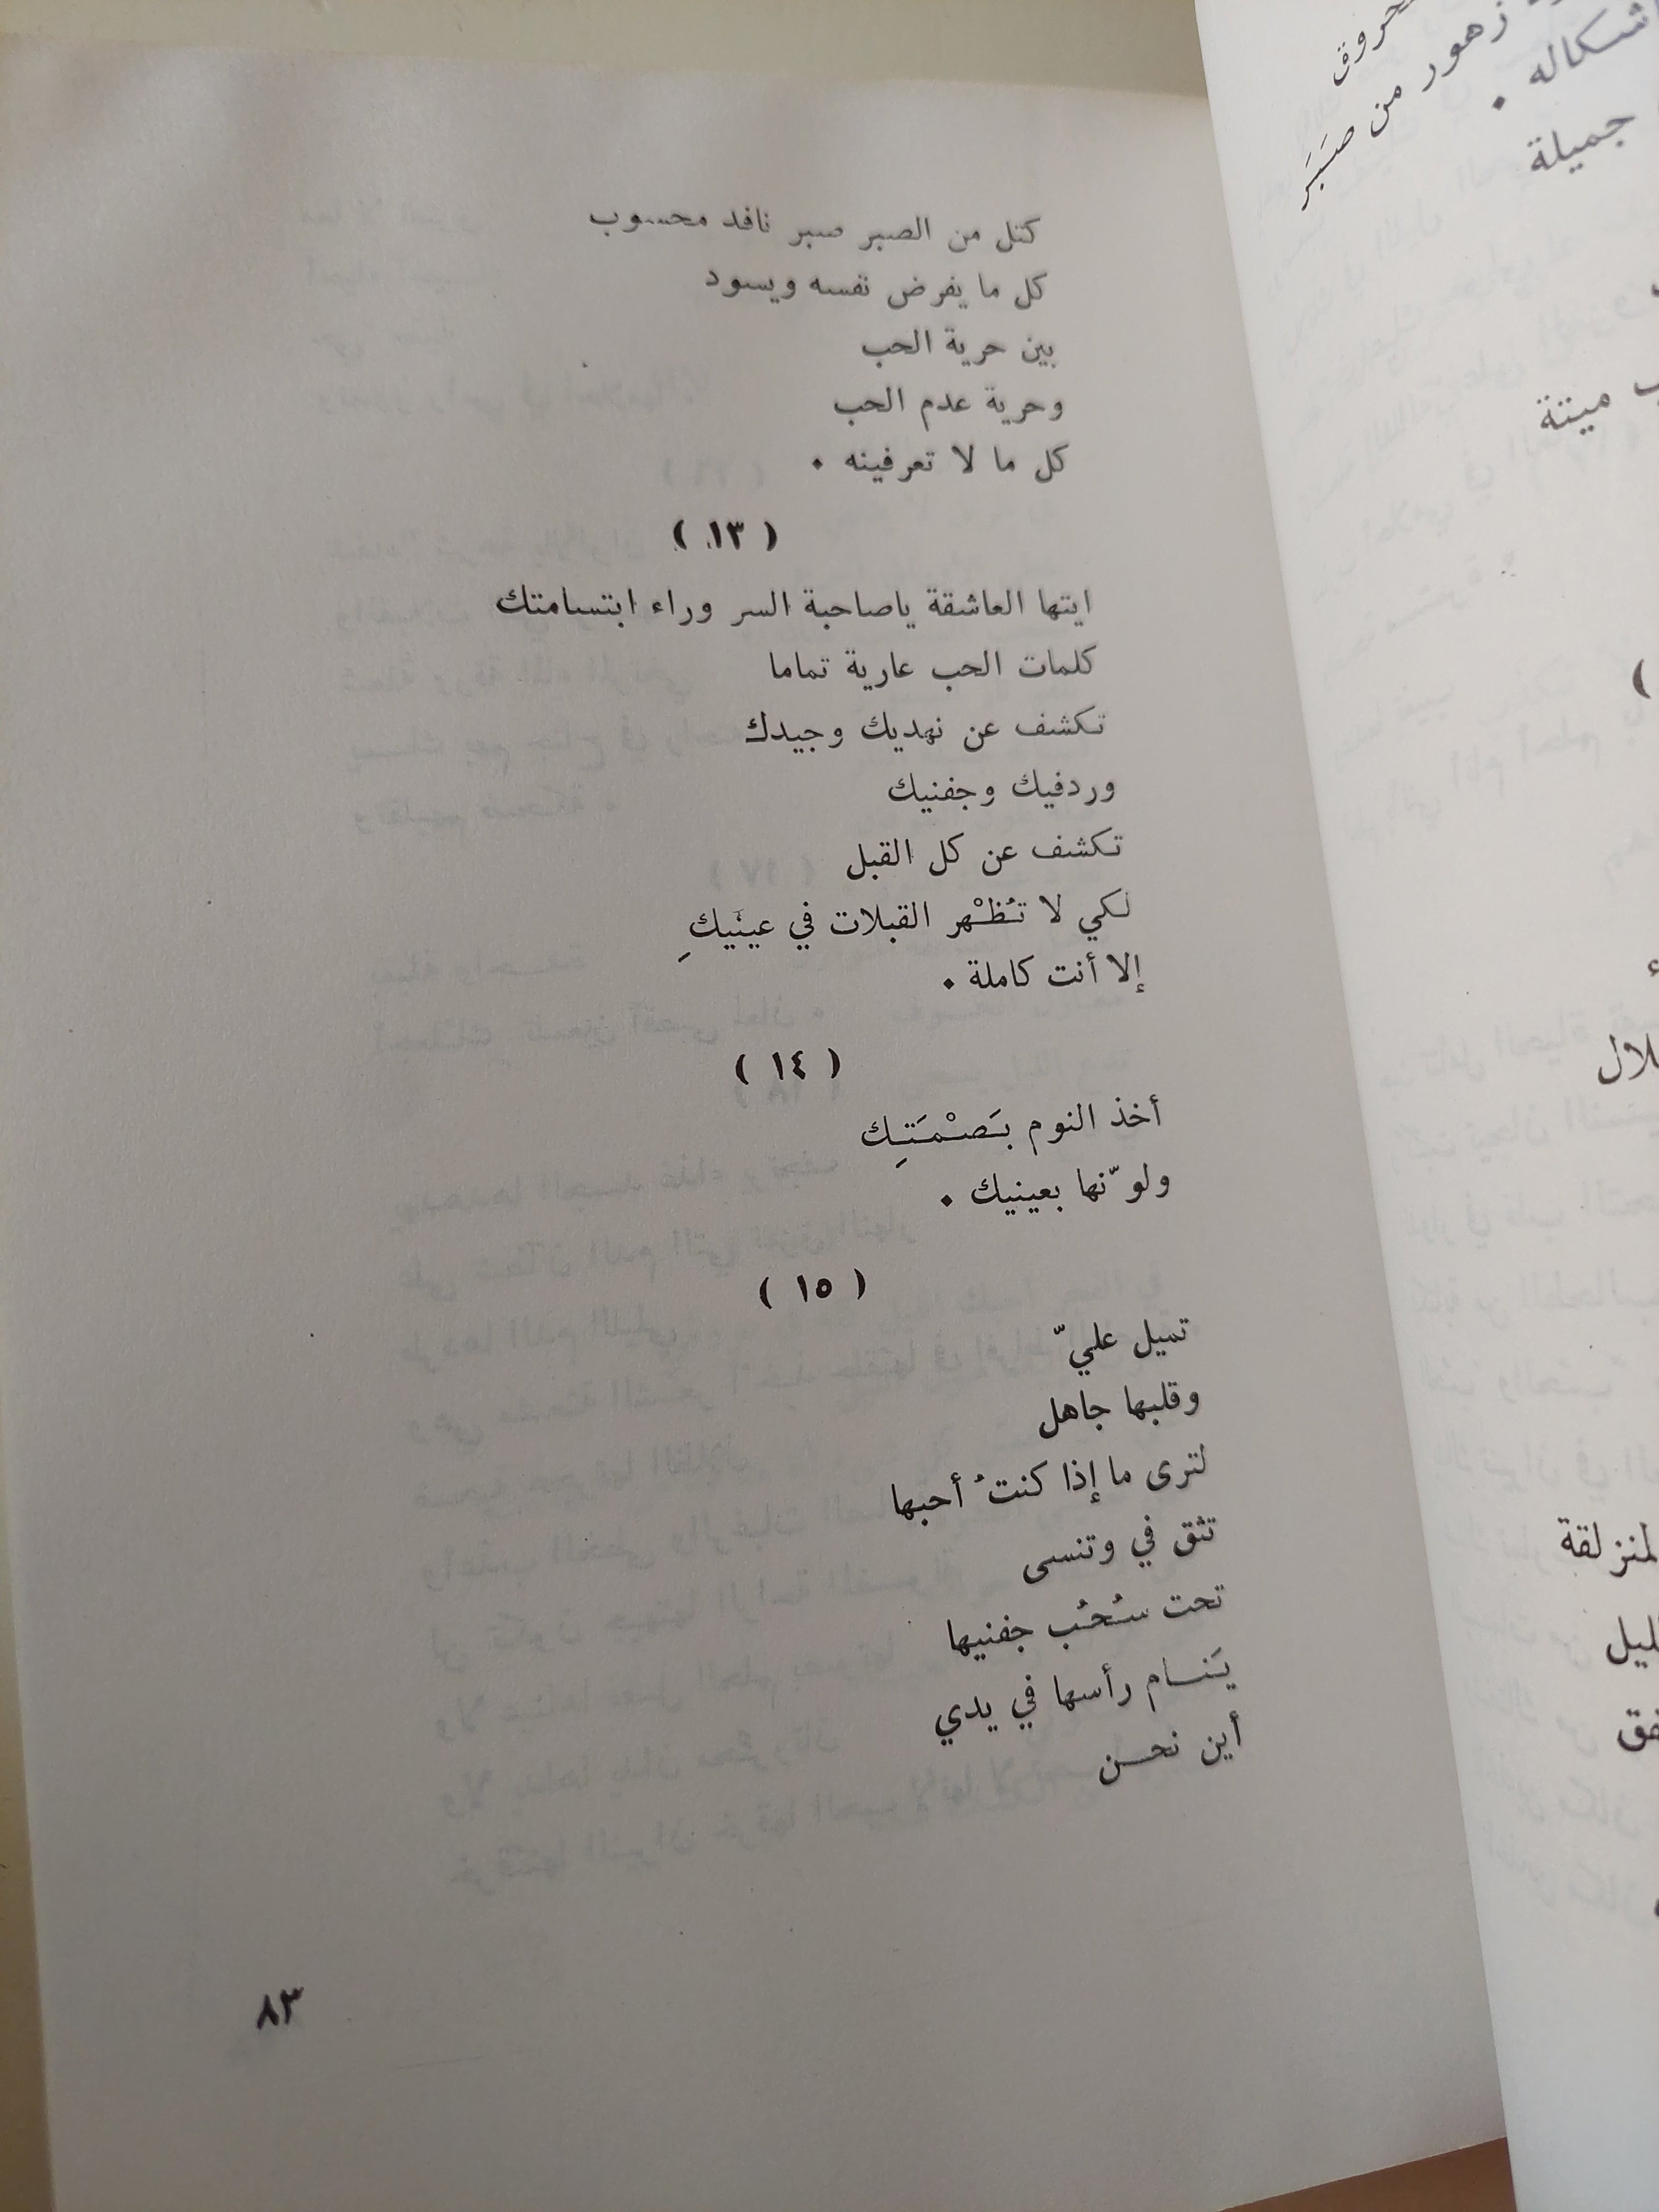 محروق
زهور من صَبَر
أشكاله .
جميلة
ميتة
)
المنزلقة
كتل من الصبر صبر نافد محسوب
كل ما يفرض نفسه ويسود
بين حرية الحب
وحرية عدم الحب
كل ما لا تعرفينه .
( ١٣ )
ايتها العاشقة ياصاحبة السر وراء ابتسامتك
كلمات الحب عارية تماما
تكشف عن نهديك وجيدك
وردفيك وجفنيك
تكشف عن كل القبل
لكي لا تُظْهر القبلات في عينَيكِ
إلا أنت كاملة .
( ١٤ )
أخذ النوم بَصْمَتِك
ولوّنها بعينيك .
( ١٥ )
تميل عليّ
وقلبها جاهل
لترى ما إذا كنتُ أحبها
تثق في وتنسى
تحت سُحُب جفنيها
يَنام رأسها في يدي
أين نحن
٨٣